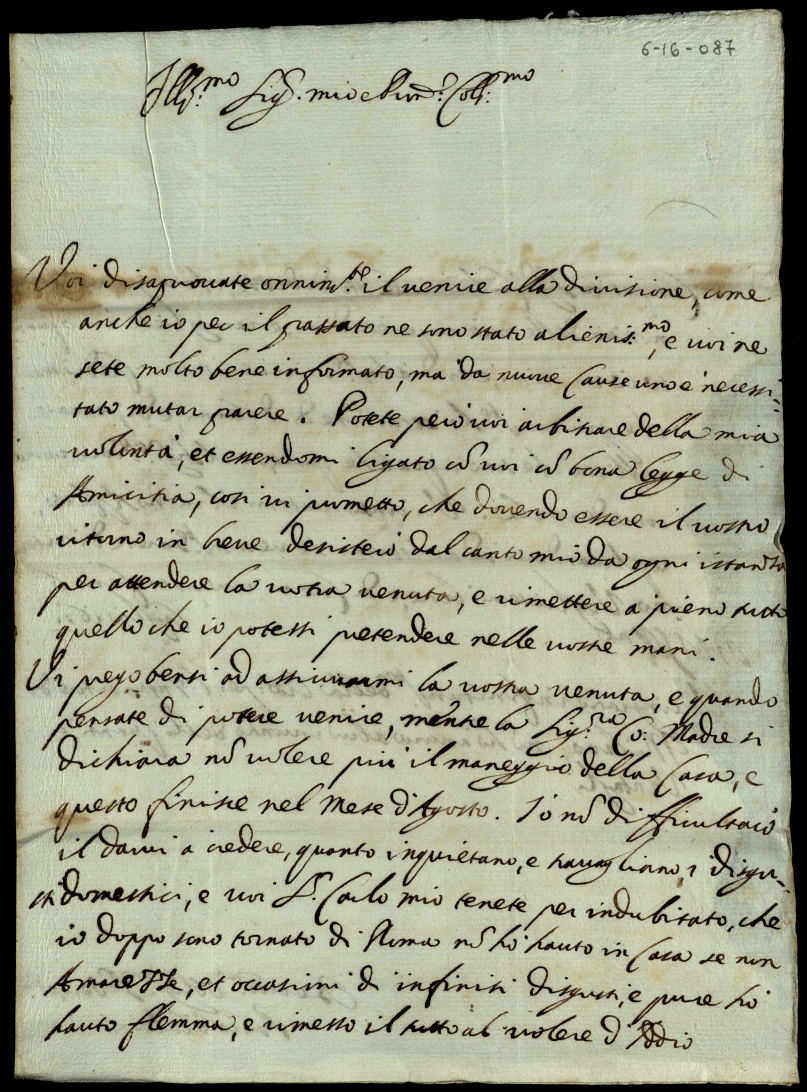 6-16-087
Ill.mo Sig. mio e Pron. Coll.mo
Voi disaprovate onnin.te il venire alla divisione, come
anche io per il passato ne sono stato alienis.mo, e voi ne
sete molto bene informato, ma da nuove cause uno è necessi-
tato mutar parere. Potete però voi arbitrare della mia
volontà, et essendomi ligato cõ voi cõ bona legge di
Amicitia, così vi prometto, che dovendo essere il vostro
ritorno in breve desisterò dal canto mio da ogni istanza
per attendere la vostra venuta, e rimettere a pieno tutto
quello che io potessi pretendere nelle vostre mani.
Vi prego bensì ad assicurarmi la vostra venuta, e quando
pensate di potere venire, mentre la Sig.ra Co: Madre si
dichiara nõ volere più il maneggio della Casa, e
questo finisce nel Mese d'Agosto. Io nõ difficultarò
il darvi a credere, quanto inquietano, e travagliano, i disgu-
sti domestici, e voi S.r Carlo mio tenete per indubitato, che
io doppo sono tornato di Roma nõ hò hauto in Casa se non
Amarezze, et occasioni di infiniti disgusti, e pure hò
hauto flemma, e rimesso il tutto al volere d'Iddio